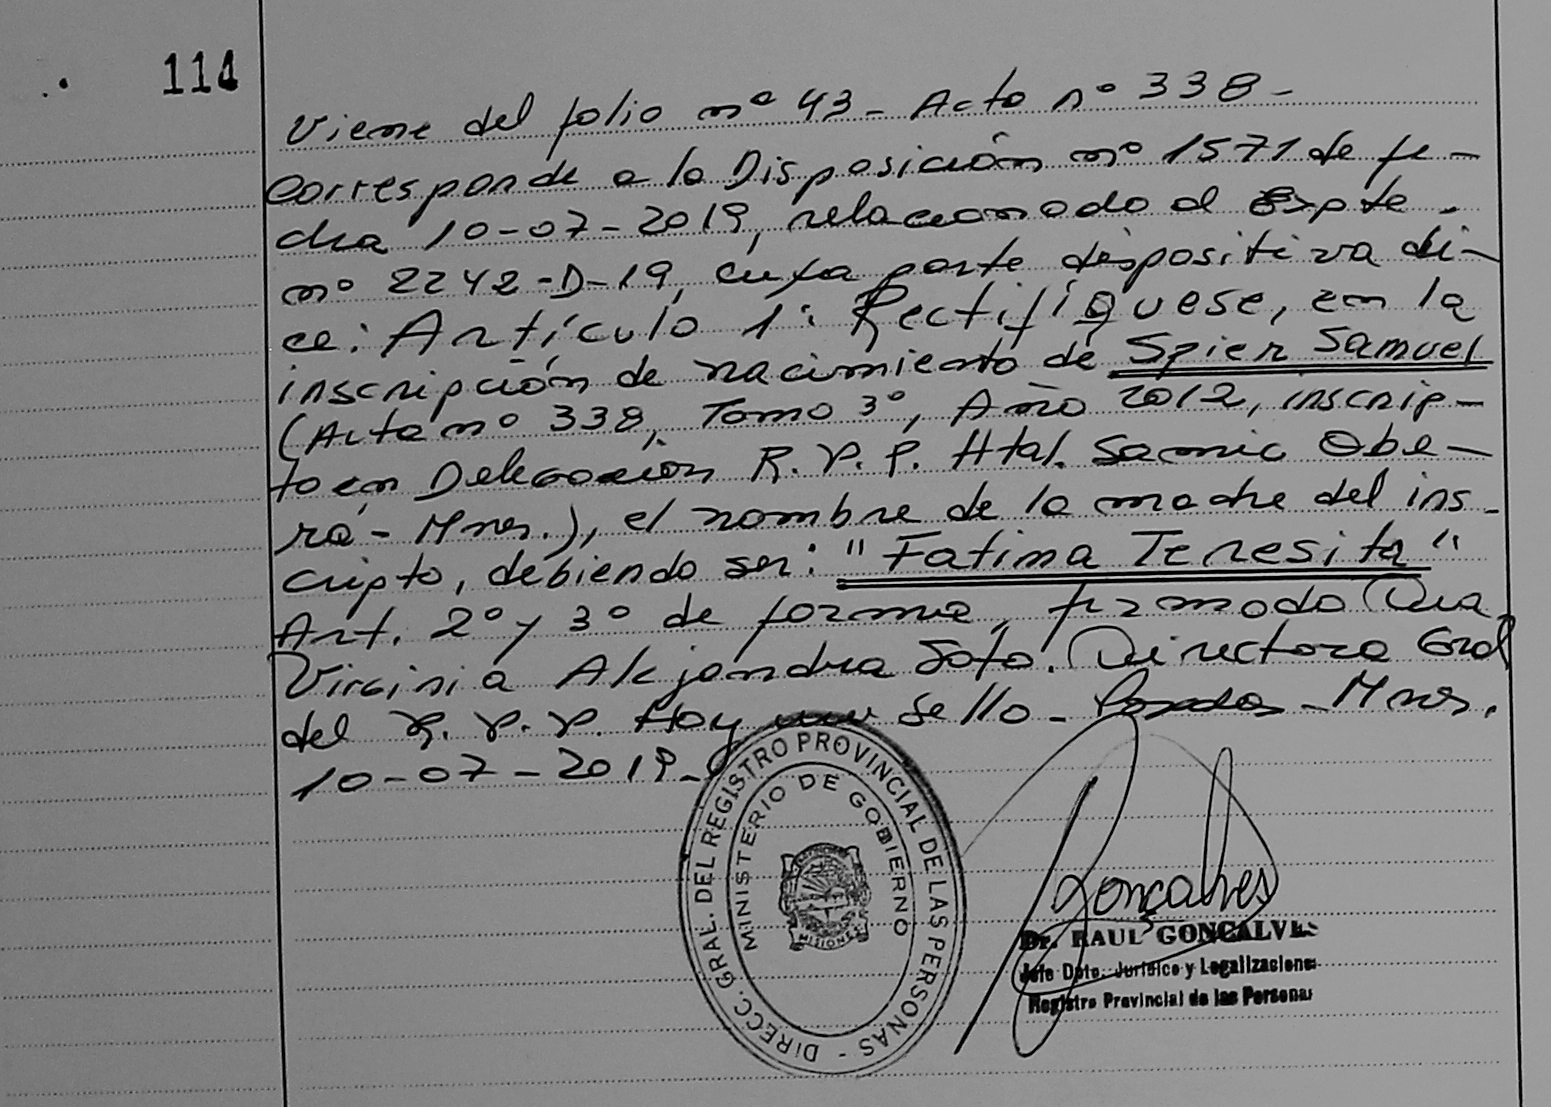 114
Viene del folio nº 43 - Acta nº 338 -
Corresponde a la Disposición nº 1571 de fe-
cha 10-07-2019, relacionado al Expte.
nº 2242-D-19, cuya parte dispositiva di-
ce: Artículo 1º: Rectifíquese, en la
inscripción de nacimiento de Spier Samuel
(Acta nº 338, Tomo 3º, Año 2012, inscrip-
to en Delegación R. P. P. Htal. Samic Obe-
rá - Mnes.), el nombre de la madre del ins-
cripto, debiendo ser: "Fatima Teresita"
Art. 2º y 3º de forma, firmado Dra
Virginia Alejandra Soto. Directora Gral
del R. P. P. Hay un sello - Posadas - Mnes.
10-07-2019.
DIRECC. GRAL. DEL REGISTRO PROVINCIAL DE LAS PERSONAS -
MINISTERIO DE GOBIERNO
MISIONES
Gonçalves
Dr. RAUL GONCALVES
Jefe Dpto. Jurídico y Legalizaciones
Registro Provincial de las Personas